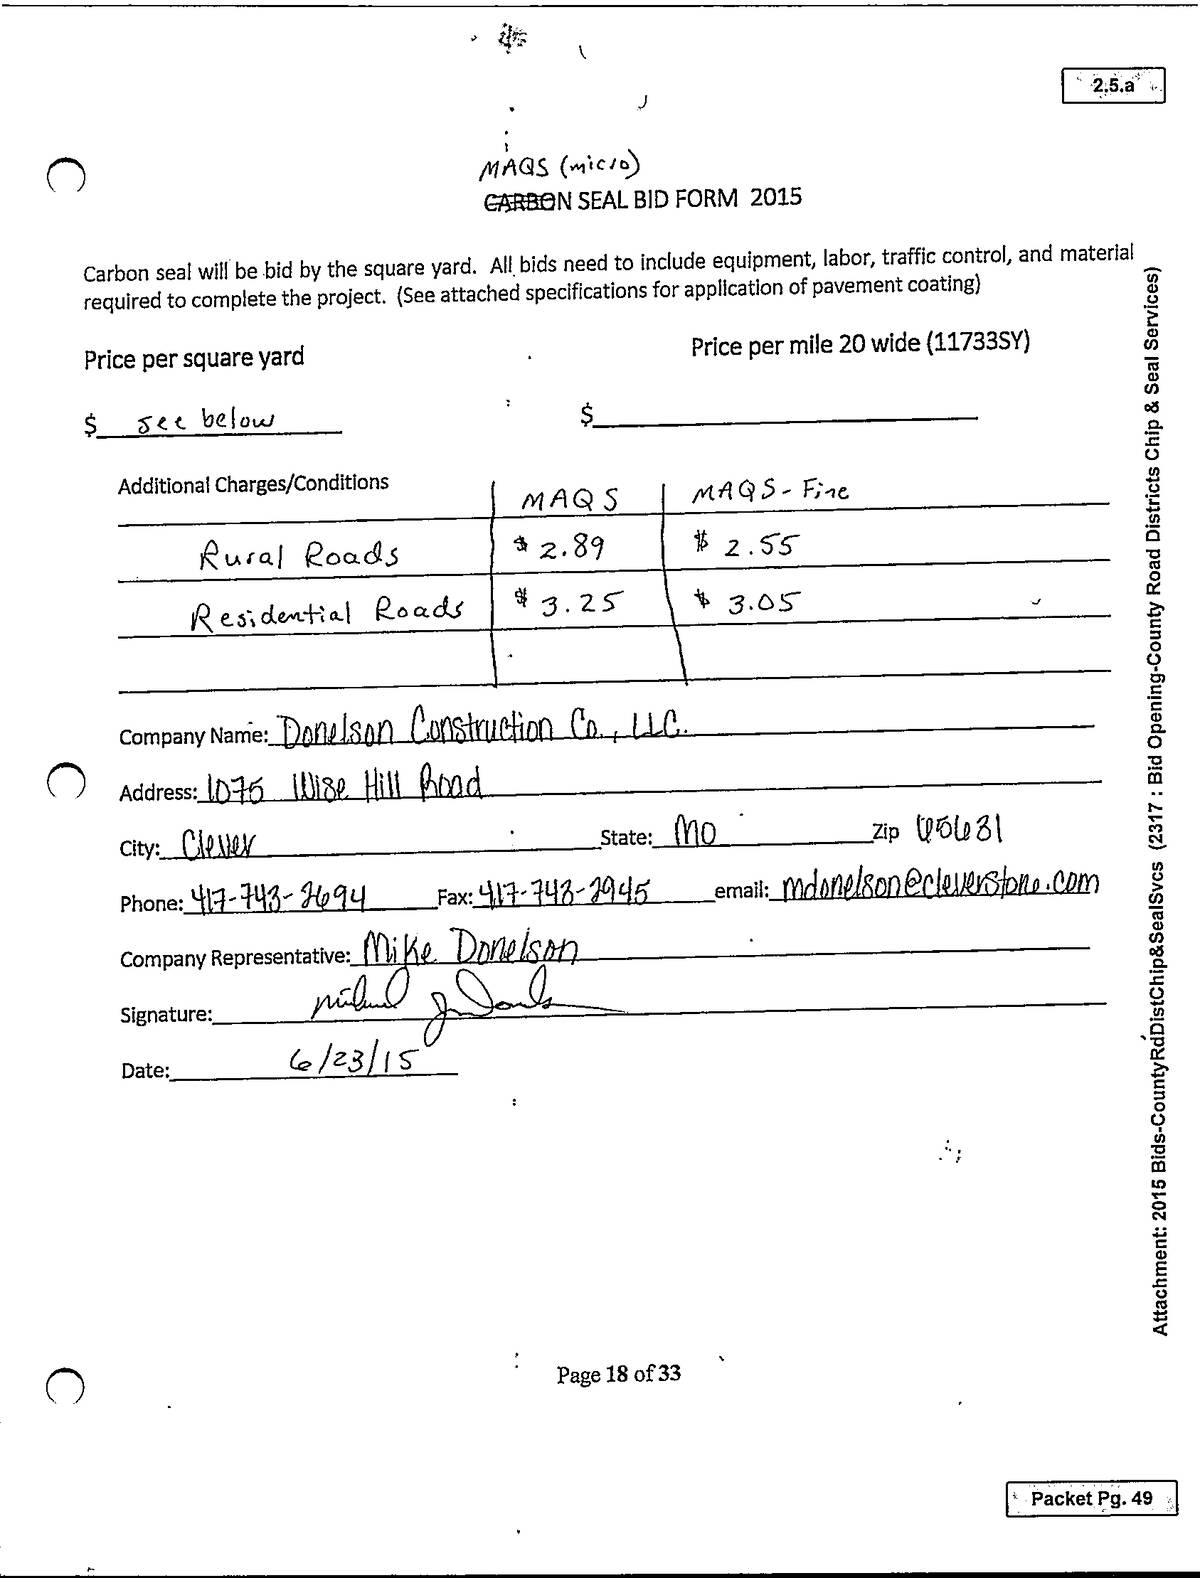 2.5.a
MAQS (micro)
CARBON SEAL BID FORM 2015
Carbon seal will be bid by the square yard. All bids need to include equipment, labor, traffic control, and material
required to complete the project. (See attached specifications for application of pavement coating)
Price per square yard Price per mile 20 wide (11733SY)
$ see below $
Additional Charges/Conditions MAQS MAQS-Fine
Rural Roads $ 2.89 $ 2.55
Residential Roads $ 3.25 $ 3.05
Company Name: Donelson Construction Co., LLC.
Address: 1075 Wise Hill Road
City: Clever State: MO Zip 65631
Phone: 417-743-2694 Fax: 417-743-2945 email: mdonelson@cleverstone.com
Company Representative: Mike Donelson
Signature:
Date: 6/23/15
Page 18 of 33
Packet Pg. 49
Attachment: 2015 Bids-CountyRdDistChip&SealSvcs (2317 : Bid Opening-County Road Districts Chip & Seal Services)